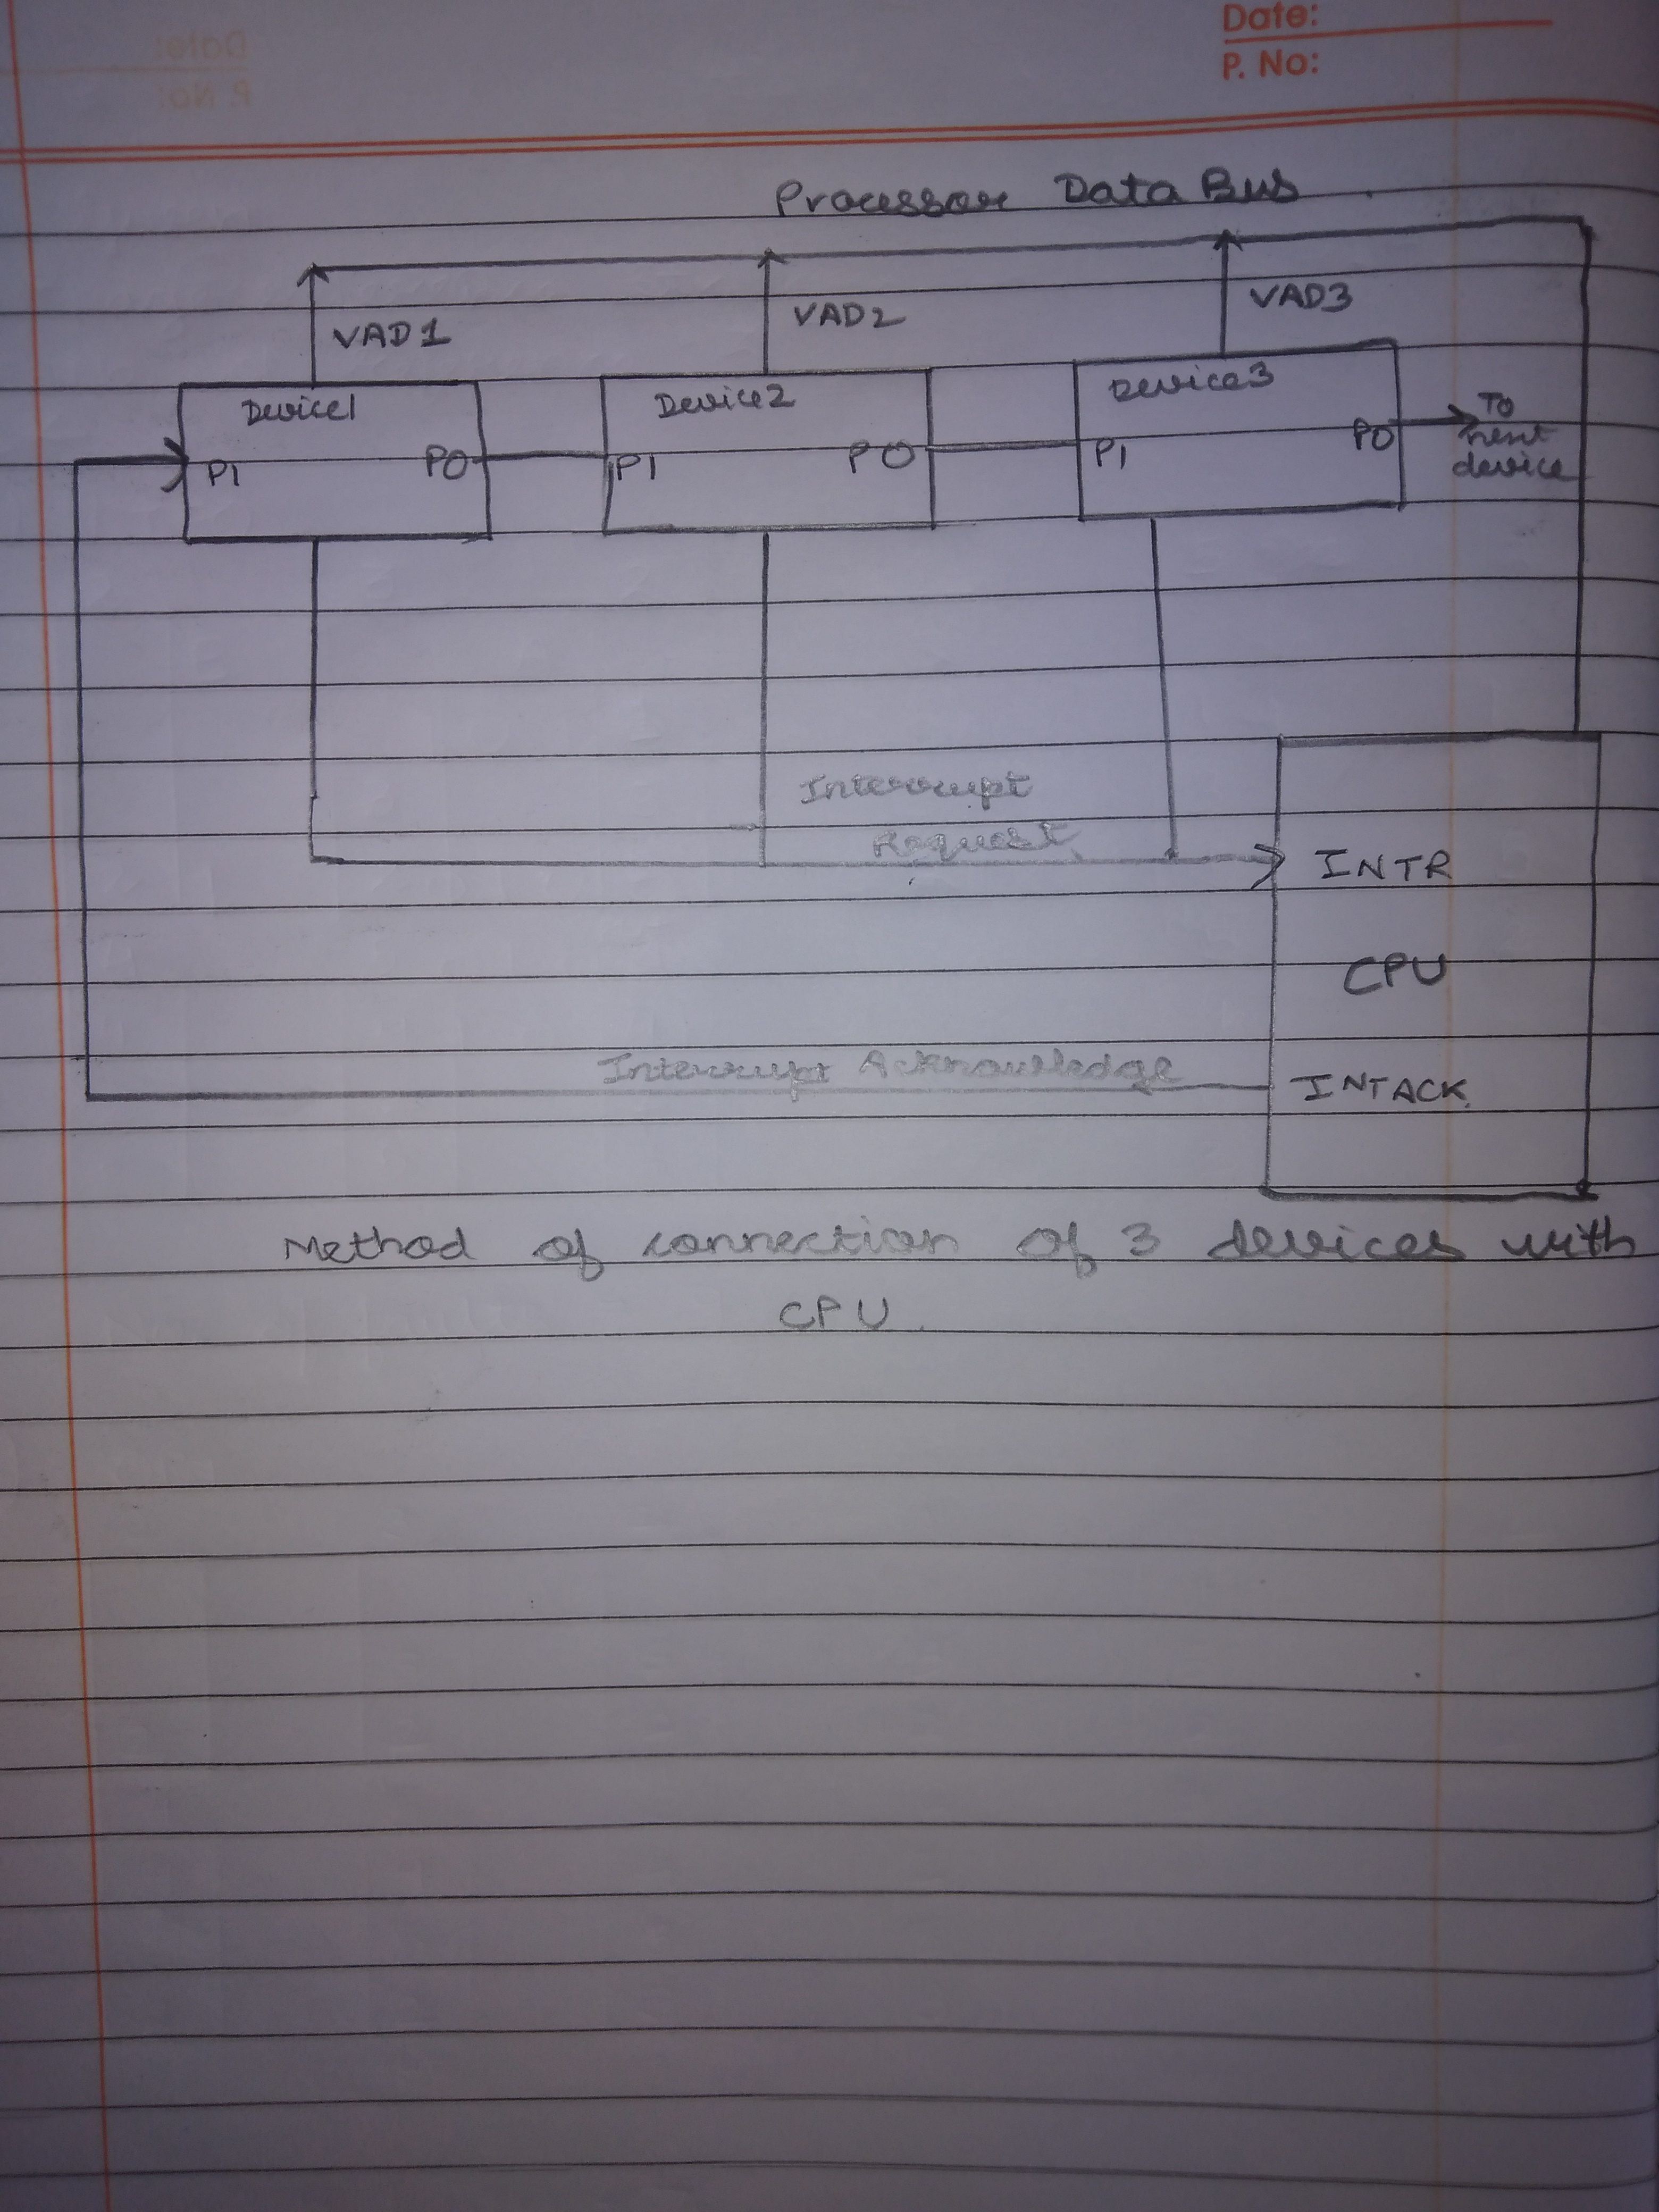 Date:
P. No:
Processor Data Bus
VAD1
VAD2
VAD3
Device1
Device2
Device3
PI
PO
PI
PO
PI
PO
To
next
device
Interrupt
Request
INTR
CPU
Interrupt Acknowledge
INTACK
Method of connection of 3 devices with
CPU.